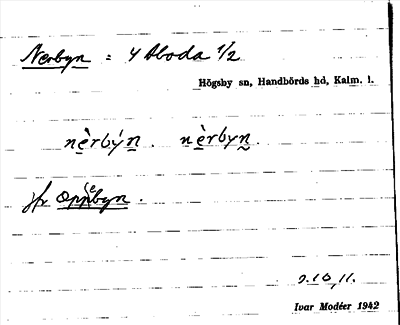 Nerbyn = Y Aboda 1/2
Högsby sn, Handbörds hd, Kalm. l.
nè̱rbýn̲. nè̱rbyn̲.
jfr Oppebyn.
9.10,11.
Ivar Modéer 1942